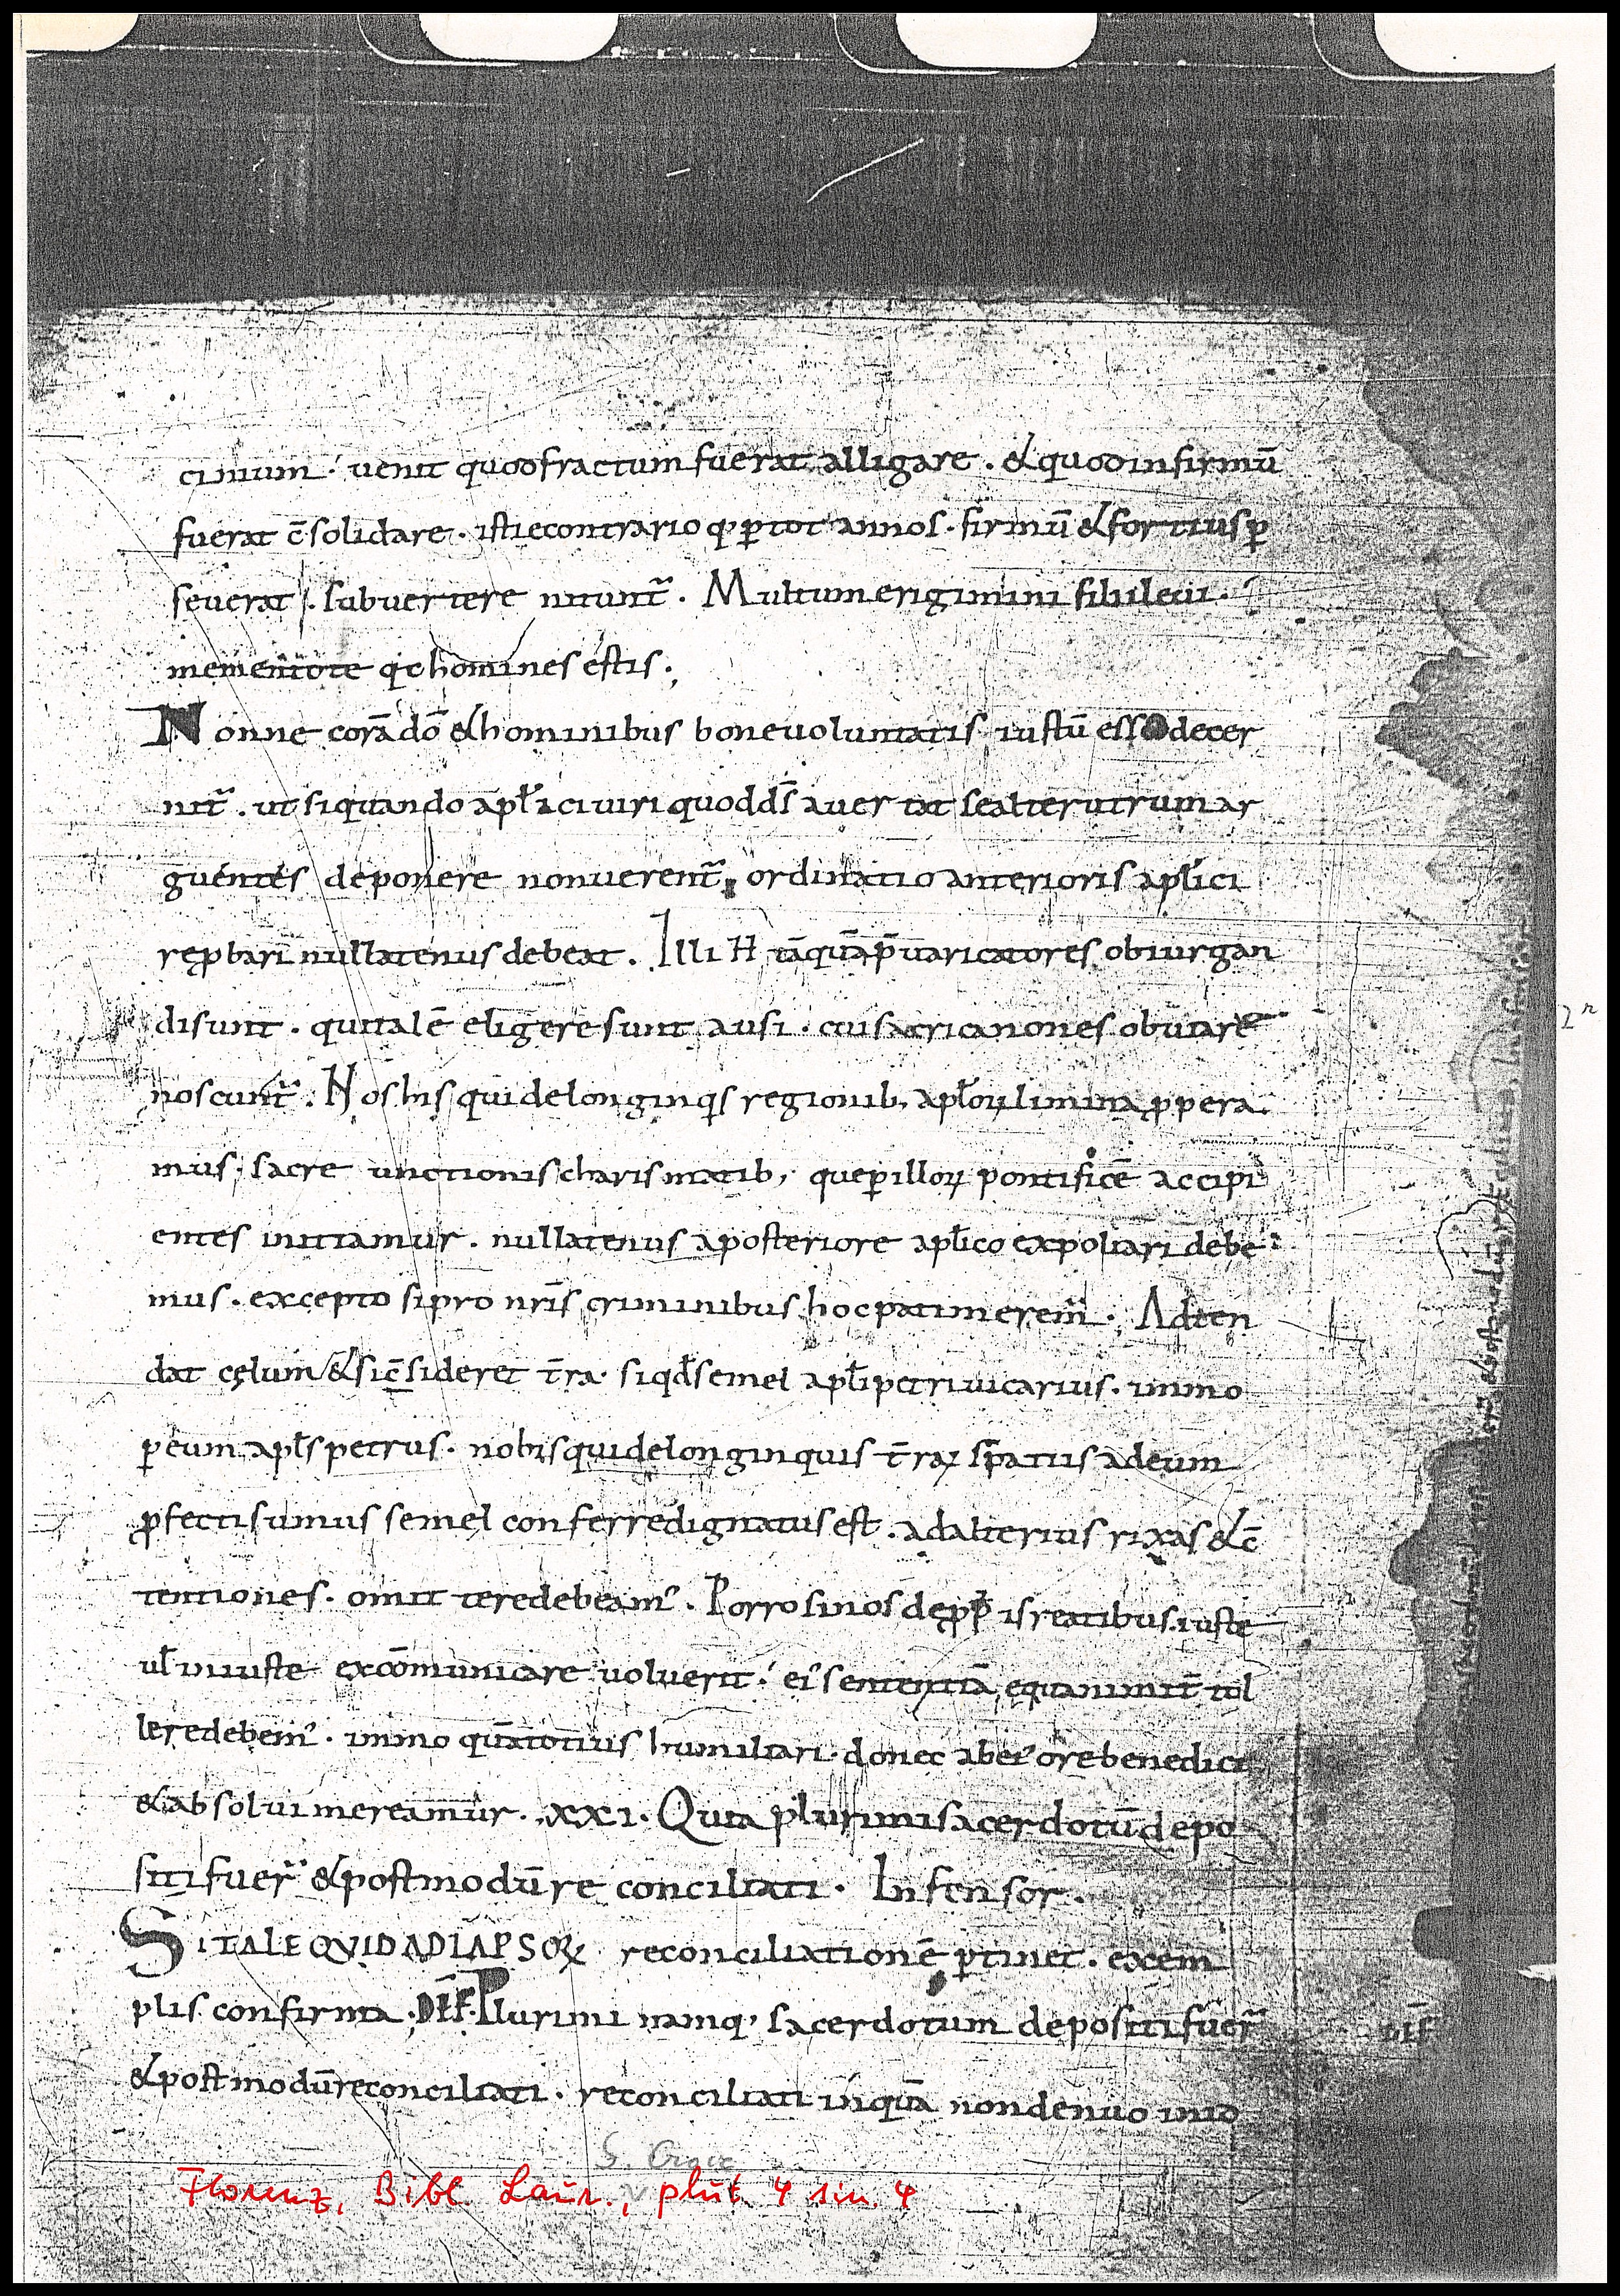 cinium · venit quod fractum fuerat alligare . & quod infirmū
fuerat c̄solidare . isti econtrario q̨ ꝑ tot annos · firmū & fortius ꝑ
severat · subvertere nitunt᷑ . Multum erigimini filii levi ·
mementote q̨ homines estis ·,
Nonne corā dō & hominibus bone voluntatis iustū esse decer
nit᷑ . ut si quando apłici viri quod d̄s avertat se alterutrum ar
guentes deponere non verent᷑ ordinatio anterioris apłici
reꝓbari nullatenus debeat . Illi H̄ tāquā p̄varicatores obiurgan
di sunt . qui talē eligere sunt ausi . cui sacri canones obviare
noscunt᷑ . Nos his qui de longinq̨s regionib, apłoꝝ limina ꝓpera
mus , sacre unctionis charismatib, que ꝑ illoꝝ pontificē accipi
entes initiamur . nullatenus a posteriore apłico expoliari debe
mus . excepto si pro nr̄is criminibus hoc pati merem᷑ . Adten
dat cęlum & si c̄sideret t̄ra · si qđ semel apłi petri vicarius . immo
ꝑ eum apłs petrus . nobis qui de longinquis t̄raꝝ spatiis ad eum
ꝓfecti sumus semel conferre dignatus est . ad alterius rixas & c̄
tentiones . omittere debeam᷒ . Porro si nos de ꝓpriis reatibus iuste
vł iniuste excōmunicare voluerit · ei᷒ sententiā equanimit̄ tol
lere debem᷒ . immo quātotius humiliari . donec ab ei᷒ ore benedici
& absolvi mereamur . xxi . Quia plurimi sacerdotū depo
siti fuer᷑ & postmodū reconciliati . Infensor .
SI TALE QVID AD LAPSOꝜ reconciliationē ꝑtinet . exem
plis confirma . DEF. Plurimi namq, sacerdotum depositi fuer᷑
& postmodū reconciliati . reconciliati inquā non denuo imo
DEF
2 n
S. Croce
Florenz, Bibl. Laur., plut. 4 sin. 4